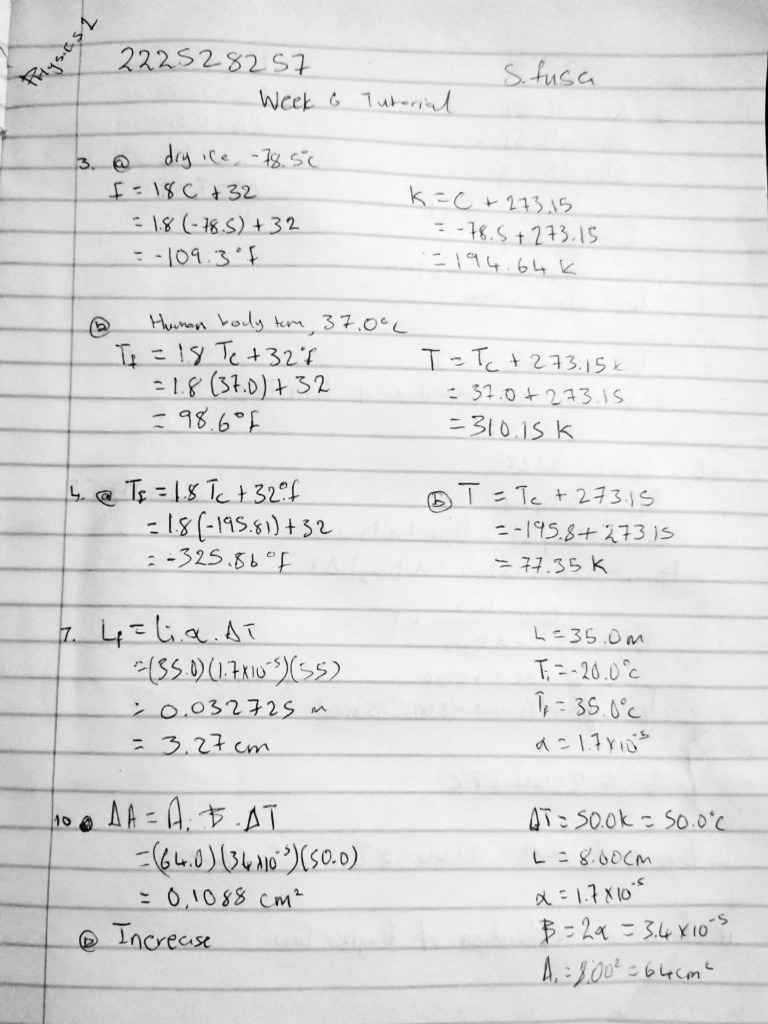 Physics 2
222528257
S. fusa
Week 6 Tutorial
3. ⓐ dry ice, -78.5°C
f = 18C + 32
= 1.8 (-78.5) + 32
= -109.3°f
K = C + 273.15
= -78.5 + 273.15
= 194.64 K
ⓑ Human body tem, 37.0°C
Tf = 18 Tc + 32°f
= 1.8 (37.0) + 32
= 98.6°f
T = Tc + 273.15K
= 37.0 + 273.15
= 310.15 K
4. ⓐ Tf = 1.8 Tc + 32°f
= 1.8 (-195.81) + 32
= -325.86°f
ⓑ T = Tc + 273.15
= -195.8 + 273.15
= 77.35 K
7. Lf = Li.α.ΔT
= (35.0)(1.7x10⁻⁵)(55)
= 0.032725 m
= 3.27 cm
L = 35.0m
Ti = -20.0°c
Tf = 35.0°c
α = 1.7x10⁻⁵
10 ⓐ ΔA = A. B. ΔT
= (64.0)(34x10⁻⁵)(50.0)
= 0,1088 cm²
ⓑ Increase
ΔT = 50.0K = 50.0°C
L = 8.00cm
α = 1.7x10⁻⁵
B = 2α = 3.4x10⁻⁵
A. = 8.00² = 64cm²